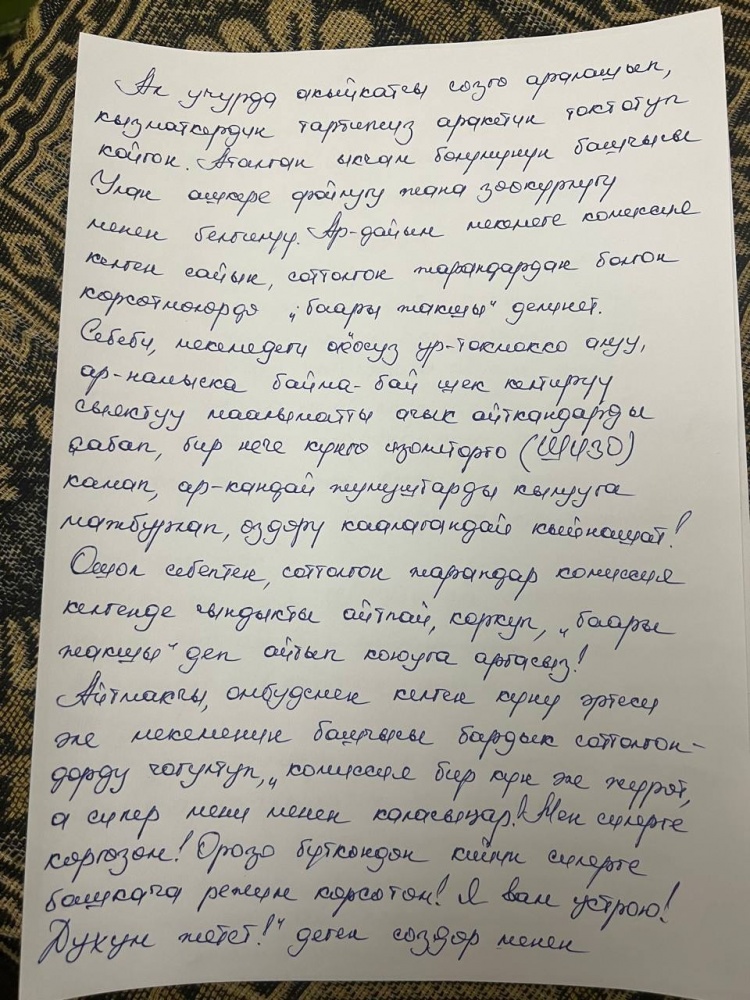 Ал учурда акыйкатчы созго аралашып,
кызматкердин тартипсиз аракетин токтотуп
койгон. Аталган ыкчам болумунун башчысы
Улан ашкере файлугу жана зоокурлугу
менен белгилуу. Ар-дайым мекемеге комиссия
келген сайын, соттолгон жарандардан болгон
корсотмолордо „баары жакшы" делинет.
Себеби, мекемедеги одоосуз ур-токмокко алуу,
ар-намыска байма-бай шек келтируу
сыяктуу маалыматты ачык айткандарды
сабап, бир нече кунго изоляторго (ШИЗО)
камап, ар-кандай жумуштарды кылууга
мажбурлап, оздору каалагандай кыйнашат!
Ошол себептен, соттолгон жарандар комиссия
келгенде чындыкты айтпай, коркуп, „баары
жакшы" деп айтып коюуга аргасыз!
Айтмакчы, омбудсмен келген куну эртеси
эле мекеменин башчысы бардык соттолгон-
дорду чогултуп, „комиссия бир кун эле журот,
а силер мени менен каласыңар! Мен силерге
коргозом! Орозо буткондон кийин силерге
башкача режим корсотом! Я вам устрою!
Духум жетет!" деген создор менен